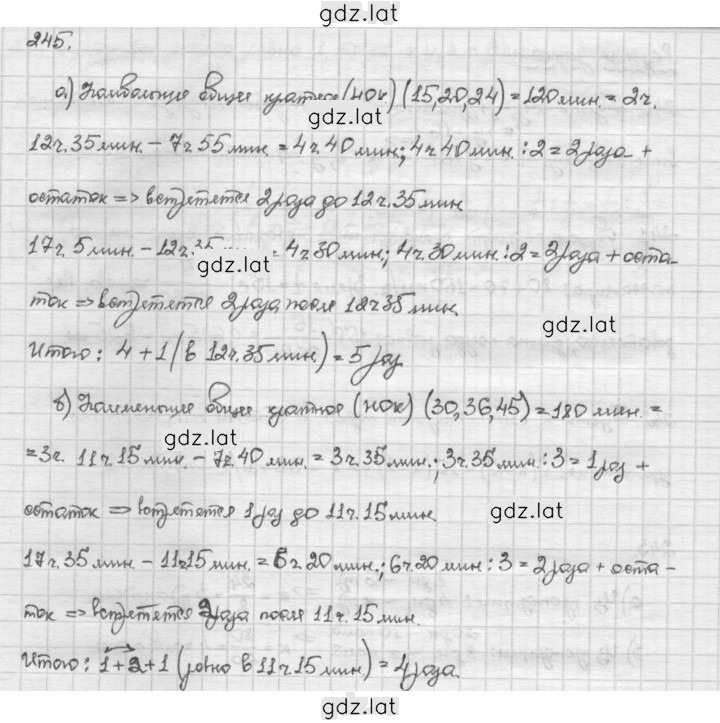 gdz.lat
245.
а) Наибольшее общее кратное (НОК) (15,20,24) = 120 мин. = 2ч.
gdz.lat
12ч.35мин. - 7ч 55мин = 4ч.40мин.; 4ч 40мин. : 2 = 2 раза +
остаток => встретятся 2 раза до 12ч.35мин
17ч. 5мин. - 12ч.35 = 4ч30мин.; 4ч.30мин. : 2 = 2 раза + оста-
gdz.lat
ток => встретятся 2 раза после 12ч35мин.
gdz.lat
Итого: 4 + 1 (в 12ч.35мин.) = 5 раз
б) Наименьшее общее кратное (НОК) (30,36,45) = 180 мин. =
gdz.lat
= 3ч. 11ч.15мин. - 7ч.40мин. = 3ч.35мин.; 3ч.35мин. : 3 = 1 раз +
остаток => встретятся 1 раз до 11ч.15мин.
gdz.lat
17ч.35мин. - 11ч15мин. = 6ч.20мин.; 6ч.20мин : 3 = 2 раза + оста-
ток => встретятся 2 раза после 11ч.15мин.
Итого: 1+2+1 (ровно в 11ч15мин) = 4 раза.
gdz.lat